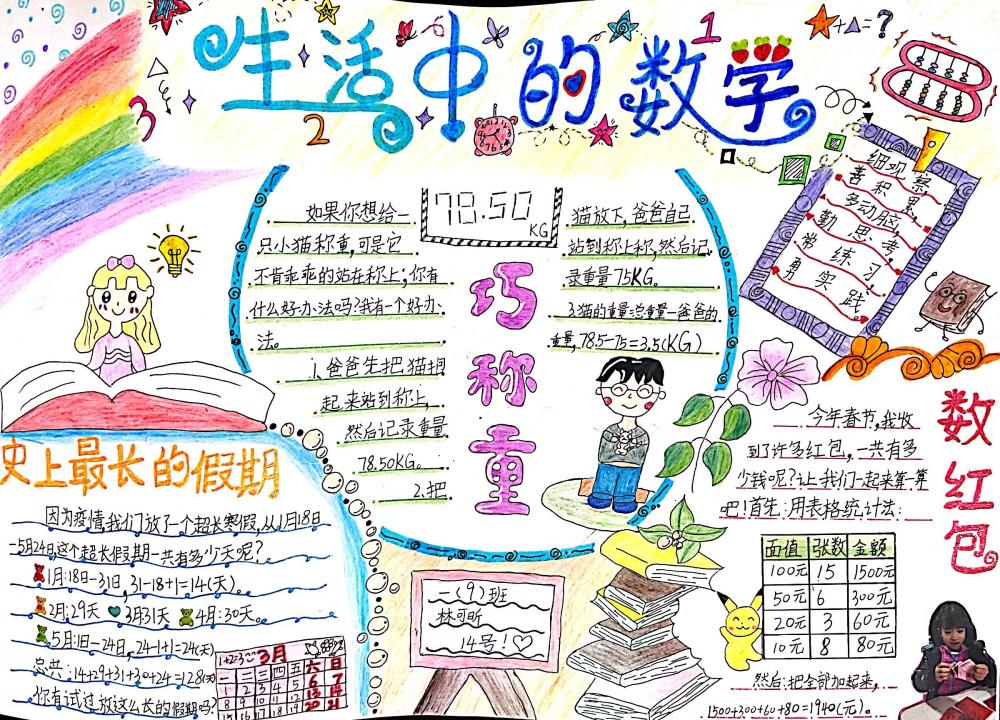 生活中的数学
1
2
3
+△=?
如果你想给一
只小猫称重,可是它
不肯乖乖的站在称上;你有
什么好办法吗?我有一个好办
法。
1、爸爸先把猫抱
起来站到称上,
然后记录重量
78.50KG。
2、把
78.50
KG
巧称重
猫放下,爸爸自己
站到称上称,然后记
录重量75KG。
3猫的重量=总重量-爸爸的
重量,785-75=3.5(KG)
细观察
善积累,
多动脑,
勤思考,
常练习,
勇实践。
史上最长的假期
因为疫情我们放了一个超长寒假,从1月18日
-5月24日,这个超长假期一共有多少天呢?
1月:18日-31日,31-18+1=14(天)
2月:29天 3月31天 4月:30天。
5月:1日-24日,24-1+1=24(天)
总共:14+29+31+30+24=128(天)
你有试过放这么长的假期吗?
1+2=3~
3月
一 二 三 四 五 六 日
1 2 3 4 5 6 7
8 9 10 11 12 13 14
15 16 17 18 19 20 21
一(9)班
林可昕
14号!
数红包
今年春节,我收
到了许多红包,一共有多
少钱呢?让我们一起来算一算
吧!首先:用表格统计法:
面值 张数 金额
100元 15 1500元
50元 6 300元
20元 3 60元
10元 8 80元
然后:把全部加起来,
1500+300+60+80=1940(元)。